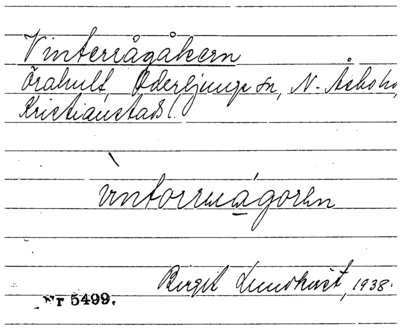 Vinterrågåkern
Örahult, Oderljunga sn, N. Åsbo hd,
Kristianstads l.
Birgit Lundkvist, 1938.
Nr 5499.